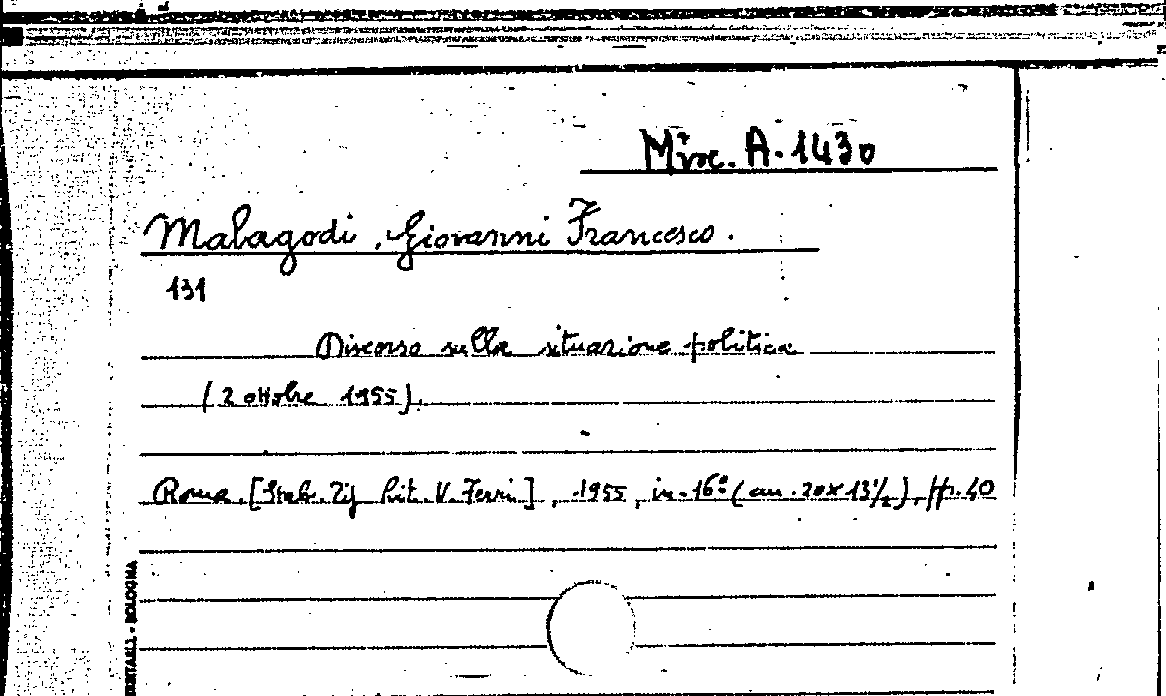 Misc. A. 1430
Malagodi, Giovanni Francesco.
131
Discorso sulla situazione politica
(2 ottobre 1955).
Roma. [Stab. Tip. Lit. V. Ferri], 1955, in-16º (cm. 20x13½), pp. 40
BOLOGNA